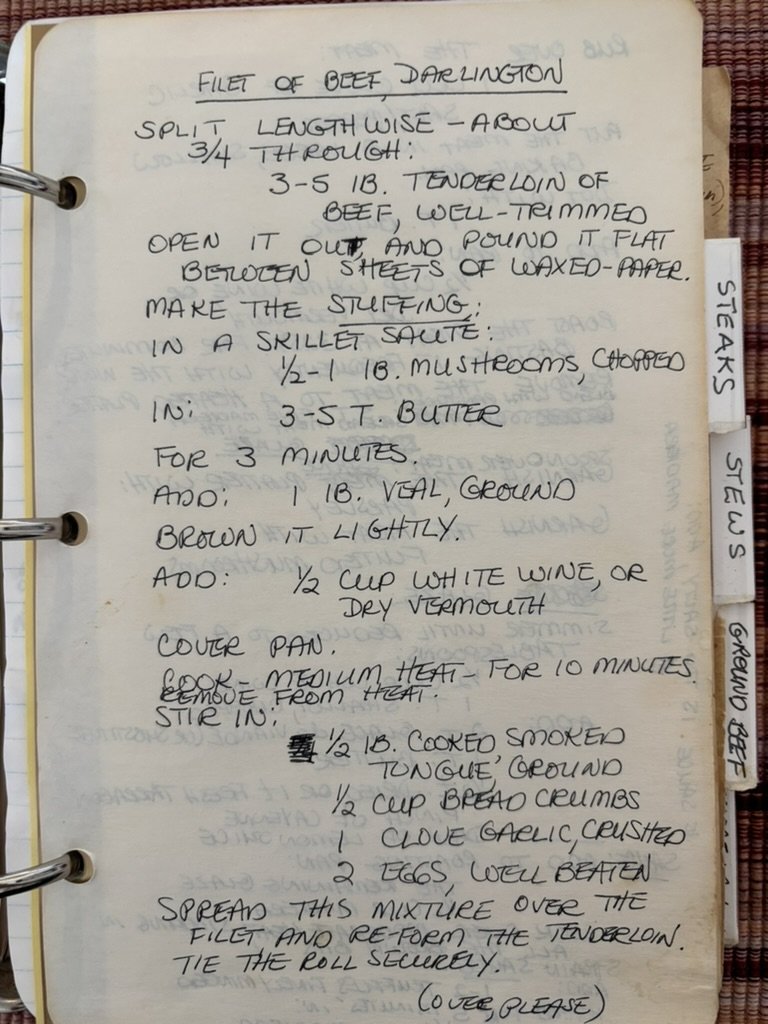 FILET OF BEEF, DARLINGTON
SPLIT LENGTHWISE - ABOUT
3/4 THROUGH:
3-5 lB. TENDERLOIN OF
BEEF, WELL-TRIMMED
OPEN IT OUT, AND POUND IT FLAT
BETWEEN SHEETS OF WAXED-PAPER.
MAKE THE STUFFING:
IN A SKILLET SAUTE:
1/2-1 lB. MUSHROOMS, CHOPPED
IN: 3-5 T. BUTTER
FOR 3 MINUTES.
ADD: 1 lB. VEAL, GROUND
BROWN IT LIGHTLY.
ADD: 1/2 CUP WHITE WINE, OR
DRY VERMOUTH
COVER PAN.
COOK - MEDIUM HEAT - FOR 10 MINUTES.
REMOVE FROM HEAT.
STIR IN:
1/2 lB. COOKED SMOKED
TONGUE, GROUND
1/2 CUP BREAD CRUMBS
1 CLOVE GARLIC, CRUSHED
2 EGGS, WELL BEATEN
SPREAD THIS MIXTURE OVER THE
FILET, AND RE-FORM THE TENDERLOIN.
TIE THE ROLL SECURELY.
(OVER, PLEASE)
STEAKS
STEWS
GROUND BEEF